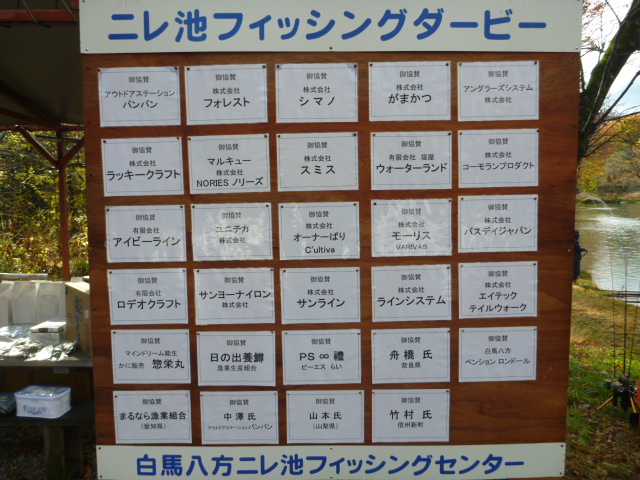 ニレ池フィッシングダービー
御協賛
アウトドアステーション
バンバン
御協賛
株式会社
フォレスト
御協賛
株式会社
シマノ
御協賛
株式会社
がまかつ
御協賛
アングラーズシステム
株式会社
御協賛
株式会社
ラッキークラフト
御協賛
マルキュー
株式会社
NORIES ノリーズ
御協賛
株式会社
スミス
御協賛
有限会社 塩屋
ウォーターランド
御協賛
株式会社
コーモランプロダクト
御協賛
有限会社
アイビーライン
御協賛
ユニチカ
株式会社
御協賛
株式会社
オーナーばり
C'ultiva
御協賛
株式会社
モーリス
VARIVAS
御協賛
株式会社
バスデイジャパン
御協賛
有限会社
ロデオクラフト
御協賛
サンヨーナイロン
株式会社
御協賛
株式会社
サンライン
御協賛
株式会社
ラインシステム
御協賛
株式会社
エイテック
テイルウォーク
御協賛
マインドリーム能生
かに販売 惣栄丸
御協賛
日の出養鱒
漁業生産組合
御協賛
PS ∞ 禮
ピーエス らい
御協賛
舟橋 氏
奈良県
御協賛
白馬八方
ペンション ロンドール
御協賛
まるなら漁業組合
(愛知県)
御協賛
中澤 氏
アウトドアステーションバンバン
御協賛
山本 氏
(山梨県)
御協賛
竹村 氏
信州新町
白馬八方ニレ池フィッシングセンター